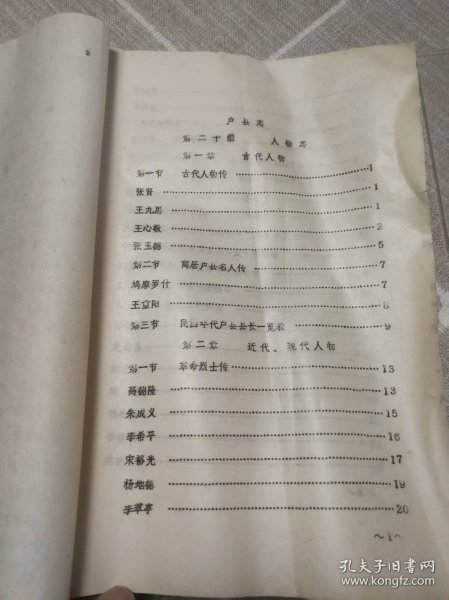 户县志
第二十编 人物志
第一章 古代人物
第一节 古代人物传 1
张贤 1
王九思 1
王心敬 2
张玉德 5
第二节 寓居户县名人传 7
鸠摩罗什 7
王重阳 8
第三节 民国年代户县县长一览表 9
第二章 近代、现代人物
第一节 革命烈士传 13
高德隆 13
朱成义 15
李希平 16
宋裕光 17
杨地德 19
李萃亭 20
～1～
孔夫子旧书网
www.kongfz.com